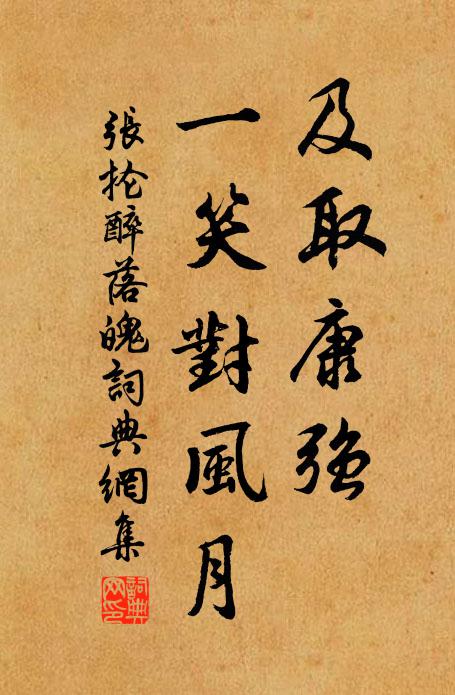 及取康強
一笑對風月
張抡醉落魄詞典網集
詞典網印